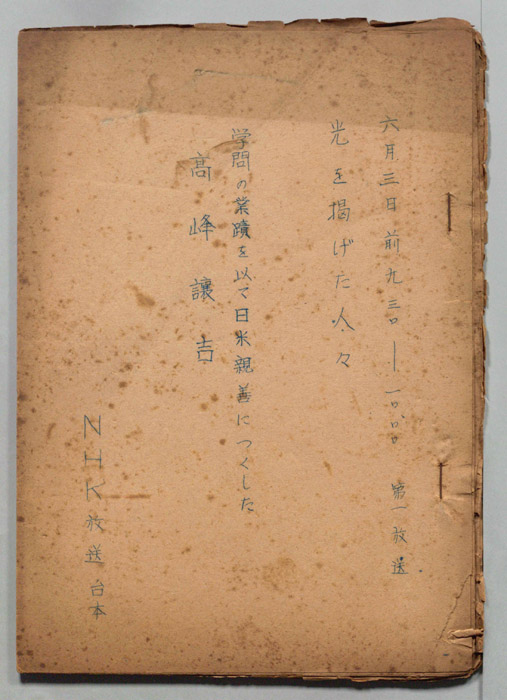 六月三日前九.三〇―一〇.〇〇 第一放送
光を掲げた人々
学問の業蹟を以て日米親善につくした
高峰譲吉
NHK放送台本